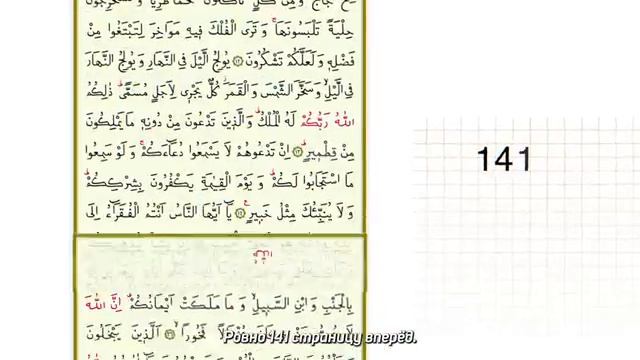 حِلْيَةً تَلْبَسُونَهَا وَتَرَى الْفُلْكَ فِيهِ مَوَاخِرَ لِتَبْتَغُوا مِنْ
فَضْلِهِ وَلَعَلَّكُمْ تَشْكُرُونَ ﴿١٢﴾ يُولِجُ الَّيْلَ فِي النَّهَارِ وَيُولِجُ النَّهَارَ
فِي الَّيْلِ وَسَخَّرَ الشَّمْسَ وَالْقَمَرَ كُلٌّ يَجْرِي لِأَجَلٍ مُسَمًّى ذٰلِكُمُ
اللّٰهُ رَبُّكُمْ لَهُ الْمُلْكُ وَالَّذِينَ تَدْعُونَ مِنْ دُونِهِ مَا يَمْلِكُونَ
مِنْ قِطْمِيرٍ ﴿١٣﴾ اِنْ تَدْعُوهُمْ لَا يَسْمَعُوا دُعَاءَكُمْ وَلَوْ سَمِعُوا
مَا اسْتَجَابُوا لَكُمْ وَيَوْمَ الْقِيٰمَةِ يَكْفُرُونَ بِشِرْكِكُمْ
وَلَا يُنَبِّئُكَ مِثْلُ خَبِيرٍ ﴿١٤﴾ يَا اَيُّهَا النَّاسُ اَنْتُمُ الْفُقَرَاءُ اِلَى
141
بِالْجَنْبِ وَابْنِ السَّبِيلِ وَمَا مَلَكَتْ اَيْمَانُكُمْ اِنَّ اللّٰهَ
فَخُورًا ﴿٣٦﴾ اَلَّذِينَ يَبْخَلُونَ
Ровно 141 страницу вперёд.